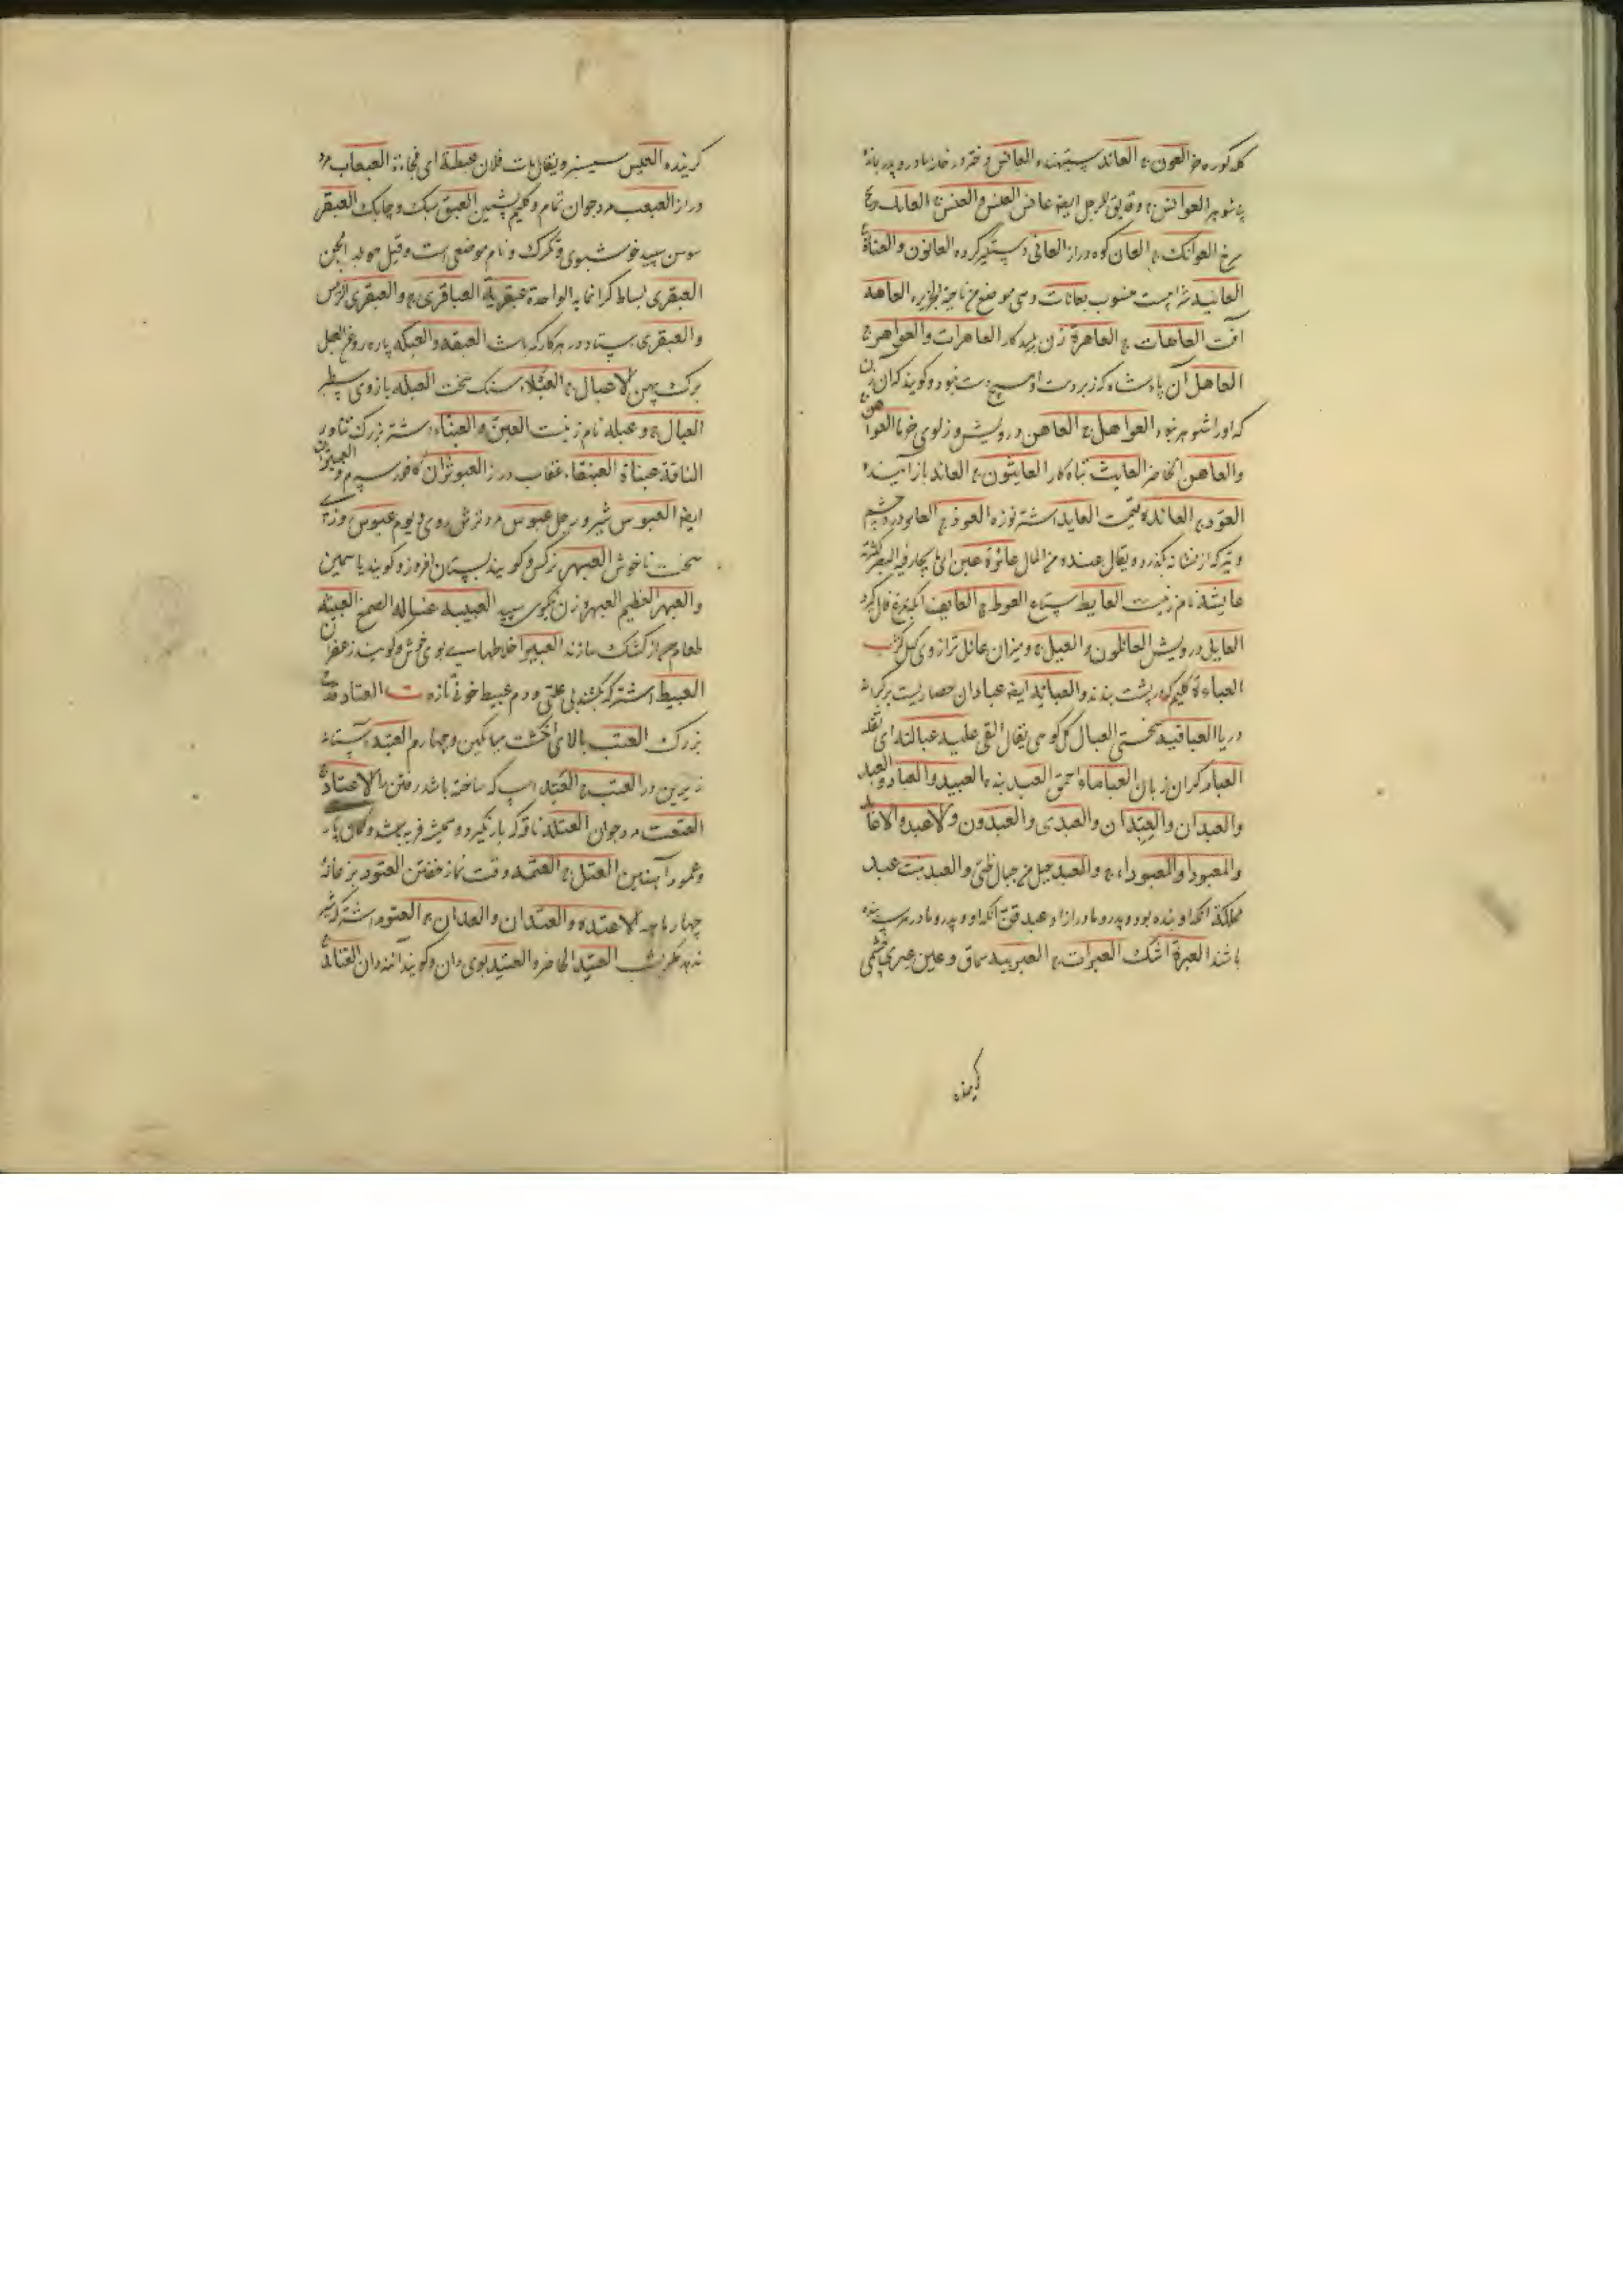 کله کوره خر العون ج العاند ستیهنده العانس دختر در خانه مادر و پدر بمانده
بی شوهر العوانس ج و قد یق للرجل ایضا عانس العنس و العنس ج العانك ریگ
سرخ العوانك ج العان کوه دراز العانی دستگیر کرده العانون و العناة ج
العانیه شرابیست منسوب بعانات و هی موضع من ناحیة الجزیره العاهه
آفت العاهات ج العاهرة زن پلید کار العاهرات و العواهر ج
العاهل آن پادشاه که زبر دست او هیچ دست نبود و گویند که آن زن
که اورا شوهر نبود العواهل ج العاهن درویش و العواهن ج
والعاهن الحاضر العایث تباه کار العایثون ج العاید باز آینده
العود ج العائده العاید اشتر نوزه العوذ ج العایر درد چشم
و تیر که از نشانه بگذرد و یقال عنده من المال عائرة عین ای یحار فیه البصر لکثرته
عایشه نام زنیست العایط ستاه العوط ج العایف آنکه بمرغ فال گیرد
العایل درویش العائلون و العیل ج و میزان عائل ترازوی
العباءة گلیم که در پشت بندند و العبایه ایضا عبادان حصاریست بر کرانه
دریا العباقیه العبال گل کوهی یقال القی علیه عبالته ای ثقله
العبام گران زبان العباماء احمق العبد بنده العبید و العباد و العبد
والعبدان والعبدان والعبدی والعبدون والاعبد والاعابد
والمعبودا والمعبوداء ج والعبد جبل من جبال طیئ و العبد نبت عبد
مملکة آنکه او بنده بود و پدر و مادر آزاد و عبد قن آنکه او و پدر و مادر هر سه بنده
باشند العبرة اشک العبرات ج العبربیه سماق و عین عبری چشمی
گرینده
گرینده العبس سیسنبر و یقال مات فلان عبطة ای فجاءة العبعاب مرد
دراز العبعب مرد جوان تمام و گلیم پشمین العبق سبک و چابک العبقر
سوسن سپید خوشبوی و تگرگ و نام موضعی است و قیل هو بلد الجن
العبقری بساط گرانمایه الواحدة عبقریة العباقری ج و العبقری الرئیس
والعبقری ستاد در هر کار که باشد العبقه والعبکه پاره روغن العبل
برگ پهن الاعبال ج العبلاء سنگ سخت العبله بازوی سطبر
العبال ج و عبله نام زنیست العبن و العبناء شتر بزرگ تناور
الناقة عبناة العبنقاء عقاب در العبوثران کافور سپرم و العبیثران
ایضا العبوس شیر و رجل عبوس مرد ترش روی و یوم عبوس روزی
سخت ناخوش العبهر نرگس و گویند بستان افروز و گویند یاسمین
والعبهر العظیم العبهره زن نیکوی سپید العبیبه غساله الصمغ العبیثه
طعامیم از کشک سازند العبیر اخلاطها بوی خوش و گویند زعفران
العبیط اشتر که بکشند بی علتی و دم عبیط خون تازه ت العتاد قدح
بزرگ العتب بالای انگشت میانگین و چهارم العتبه آستانه
زیرین در العتب ج العتد اسپ که ساخته باشد رفتن را الاعتاد ج
العتعت مرد جوان العتله ناقه که بار نگیرد و همیشه فربه باشد
و عمود آهنین العتل ج العتمه وقت نماز خفتن العتود بزغاله
چهار ماهه الاعتده والعتدان والعدان ج العتوم اشتر که شیر
ندهد مگر شب العتید الحاضر و العتیده بوی دان و گویند آینه دان العتاید ج